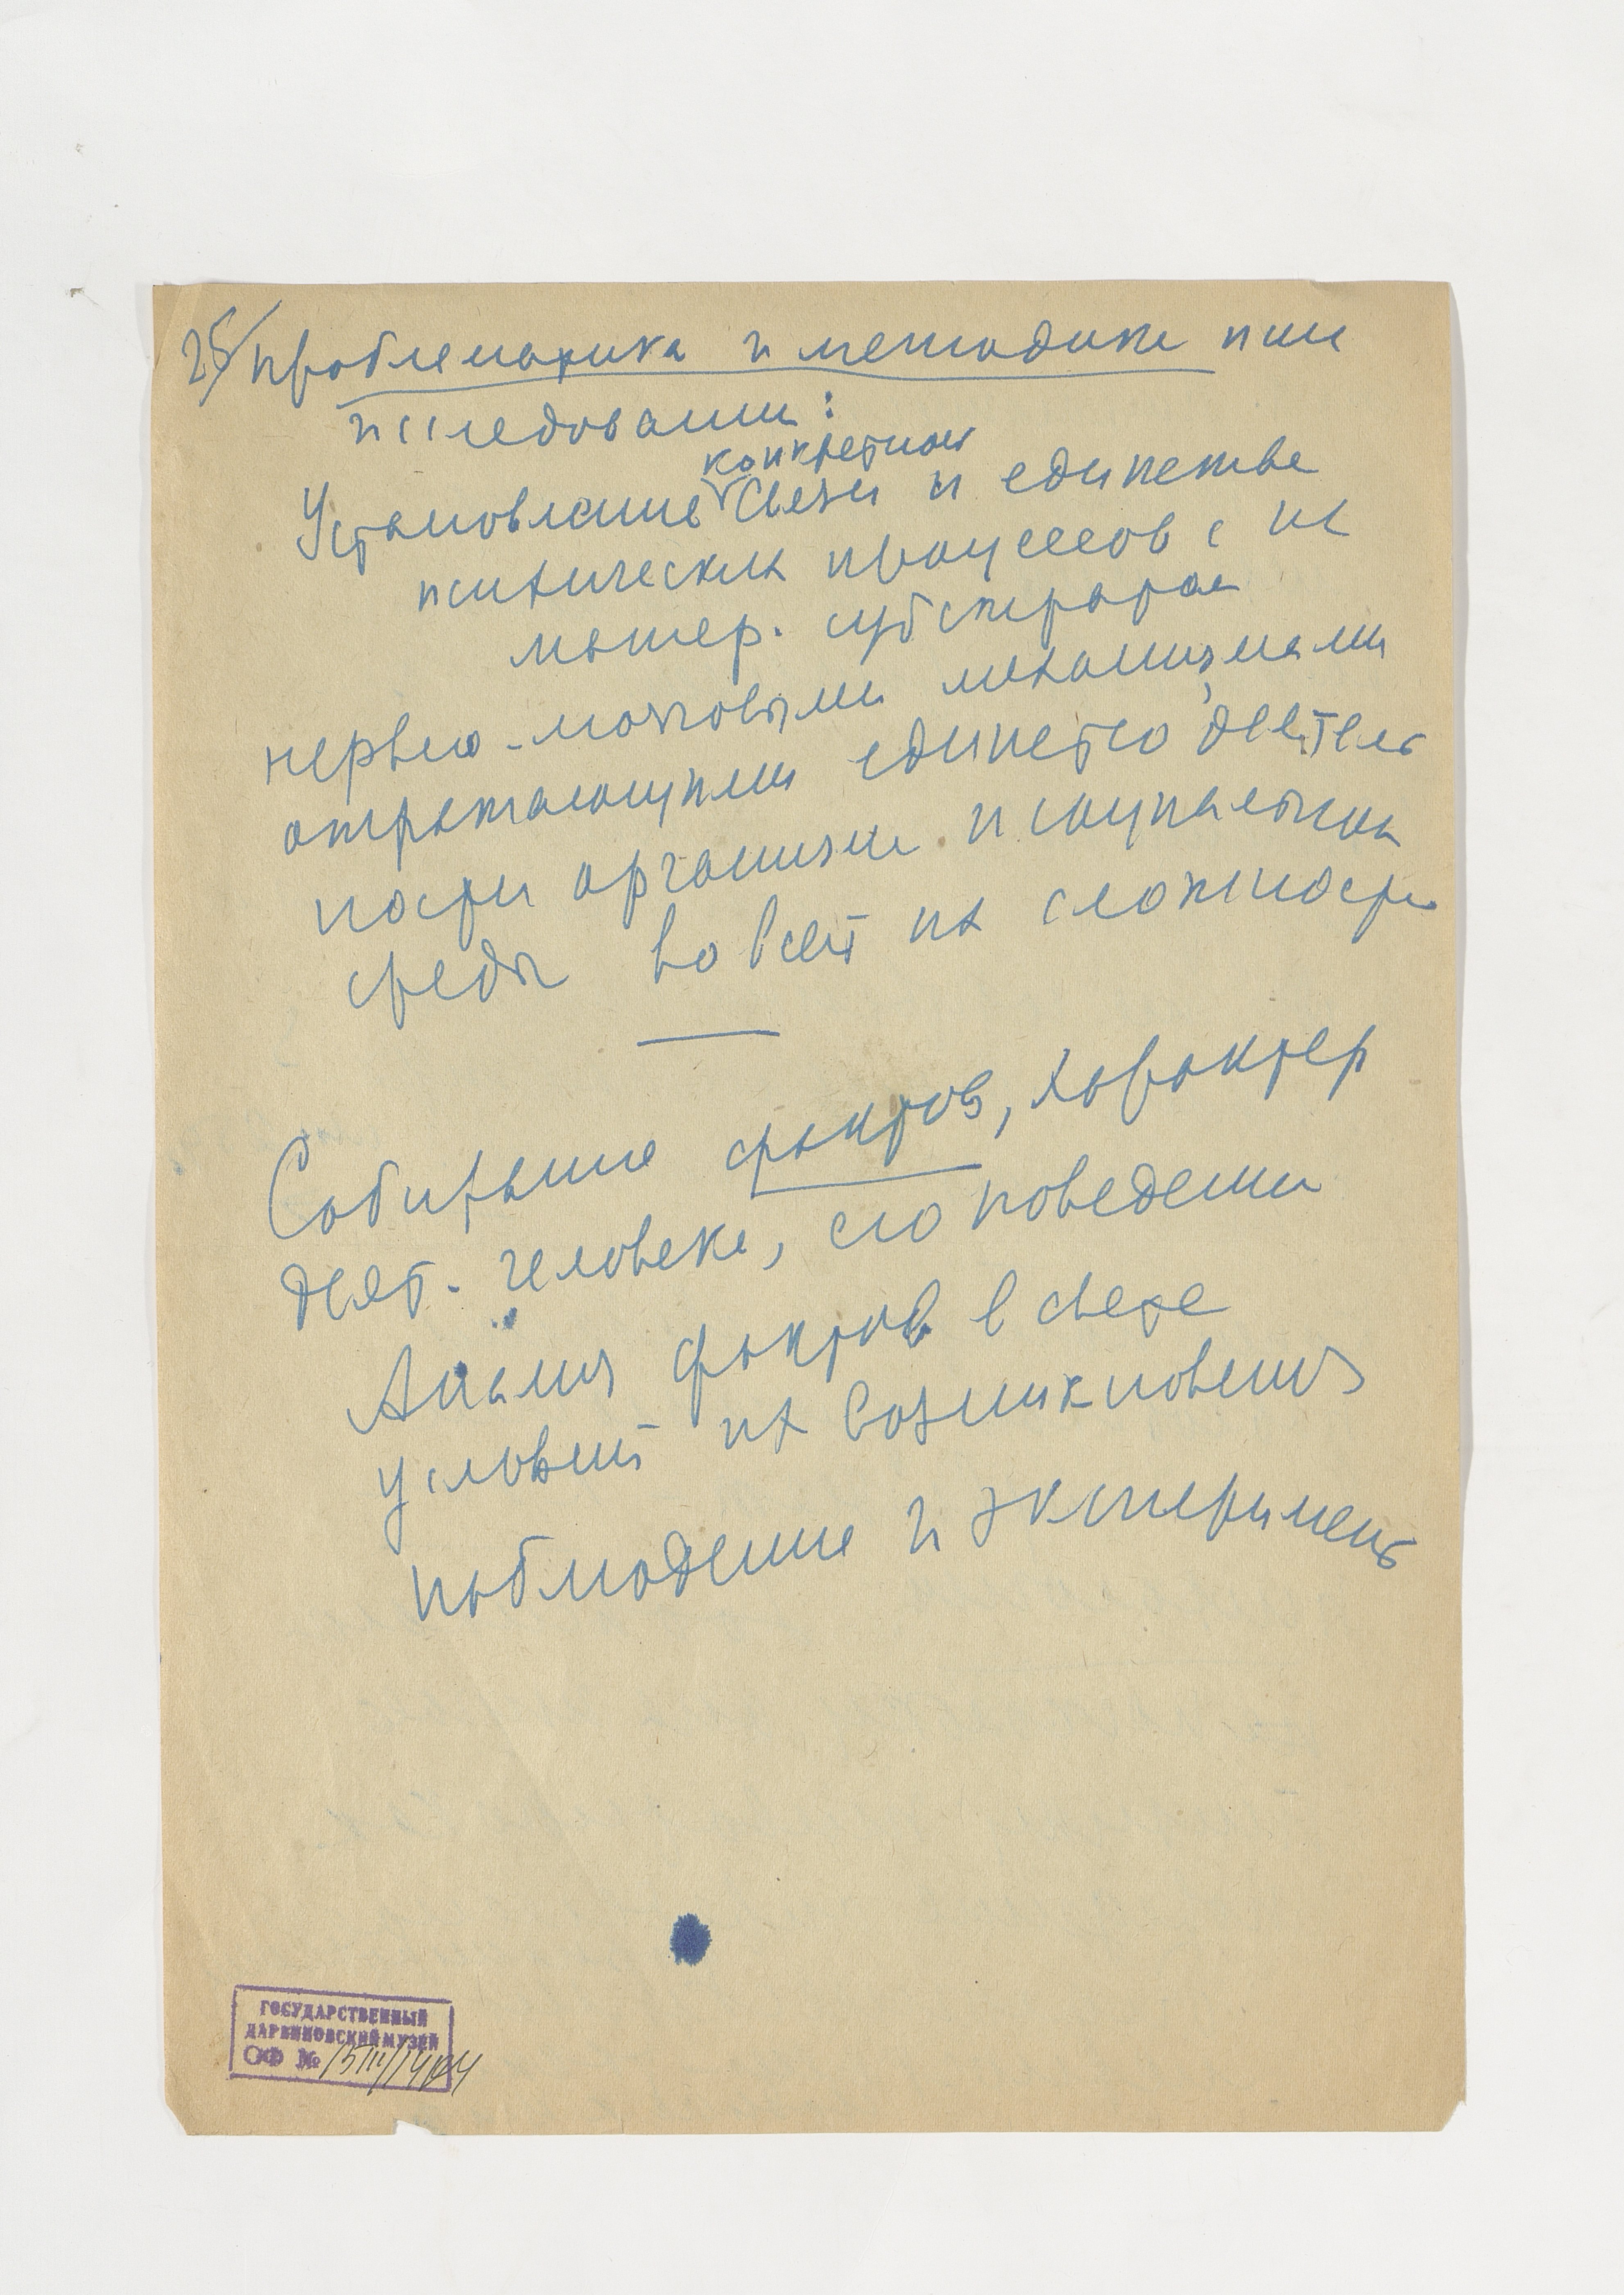 25/ Проблематика и методика псих
исследовании:
конкретной
Установление связи и единства
психических процессов с их
матер. субстратом
нервно-мозговыми механизмами
отражающими единство деятель
ности организма и социальной
среды во всей их сложности
Собирание фактов, характер
деят. человека, его поведения
Анализ фактов в свете
условий их возникновения
наблюдение и эксперимент
ГОСУДАРСТВЕННЫЙ
ДАРВИНОВСКИЙ МУЗЕЙ
ОФ №